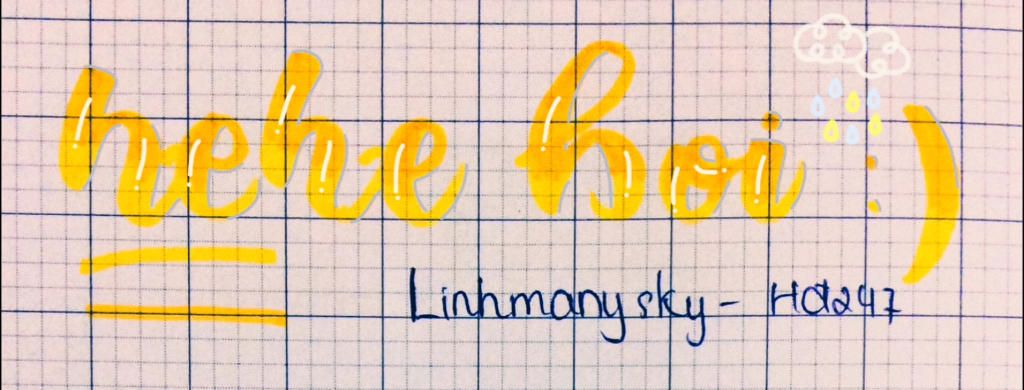 hehe hoi :)
Linhmanysky - Hd247